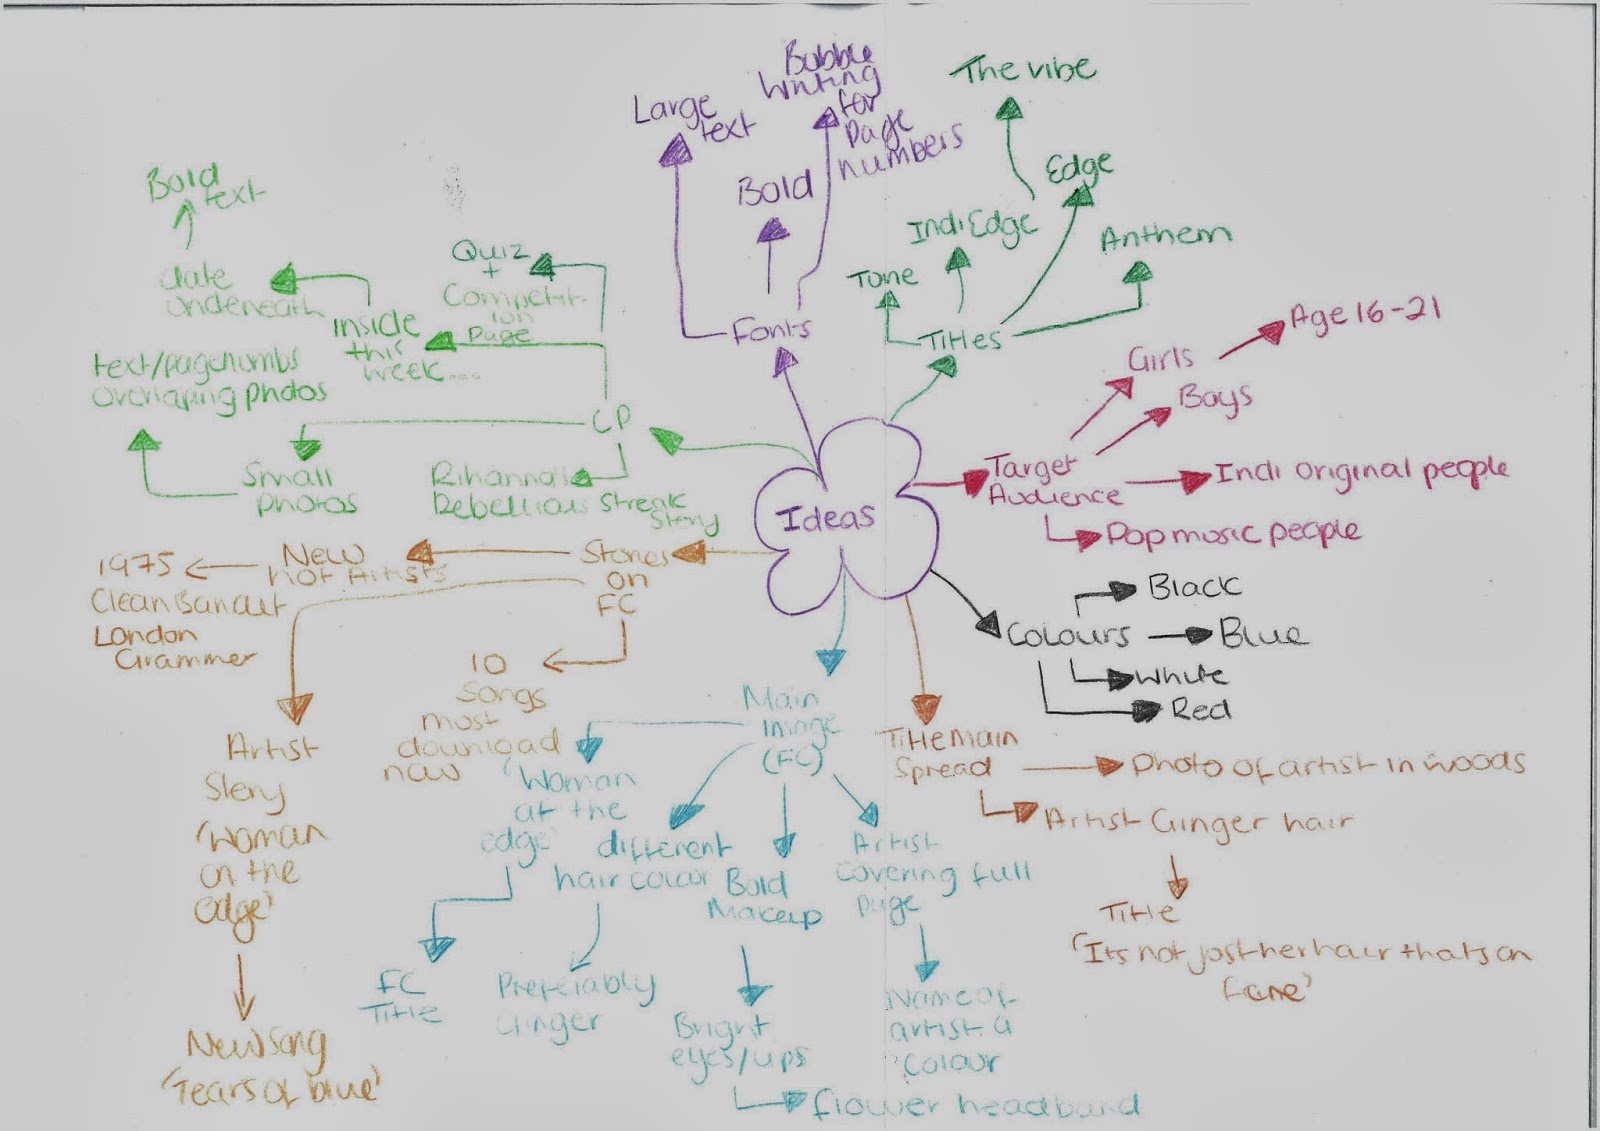 Ideas
Fonts
Large
text
Bold
Bubble
Writing
for
page
numbers
Titles
Tone
IndiEdge
The vibe
Edge
Anthem
Target
Audience
Girls
Age 16-21
Boys
Indi original people
Pop music people
Colours
Black
Blue
White
Red
Title main
Spread
Photo of artist in woods
Artist Ginger hair
Title
'Its not just her hair thats on
fire'
Main
image
(FC)
'Woman
at the
edge'
FC
Title
different
hair colour
Preferably
Ginger
Bold
Makeup
Bright
eyes/lips
flower headband
Artist
covering full
page
Name of
artist a
colour
Stories
on
FC
New
hot Artists
1975
Clean Bandit
London
Grammer
10
Songs
most
download
now
Artist
Story
'Woman
on the
edge'
New song
'Tears of blue'
CP
Quiz
+
Competit-
ion
Page
Inside
this
week....
date
underneath
Bold
text
Small
photos
text/pagenumbs
overlaping photos
Rihanna
Rebellious Streak
Story